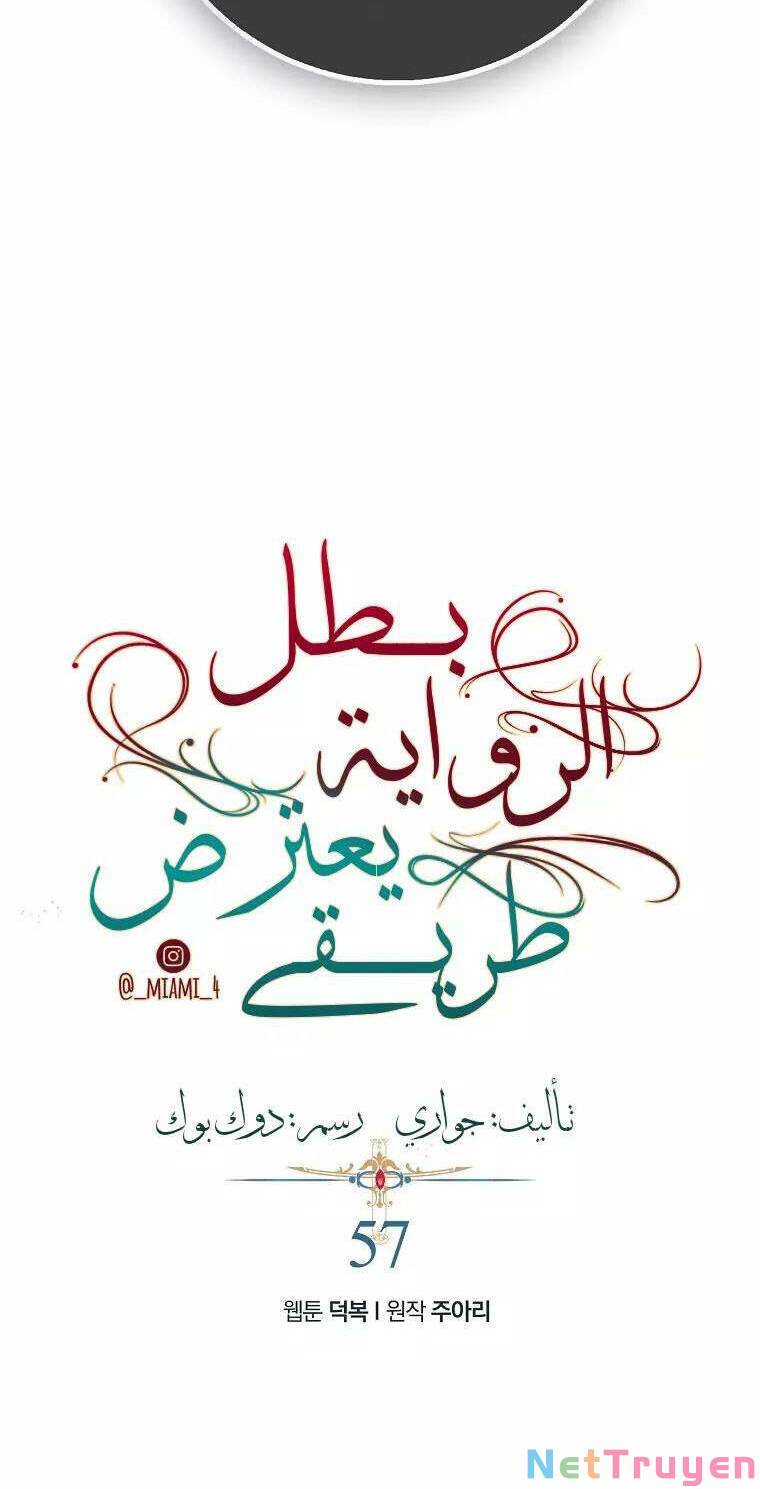 بطل
الرواية
يعترض
طريقي
@_MIAMI_4
تأليف: جواري رسم: دوك بوك
57
웹툰 덕복 I 원작 주아리
NetTruyen